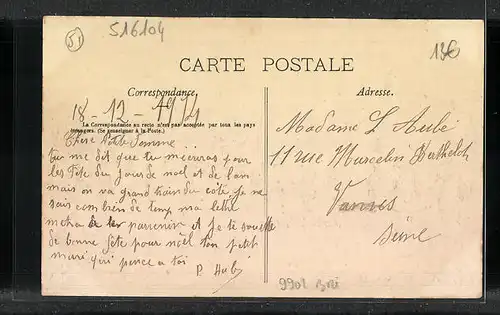 51
516104
130
CARTE POSTALE
Correspondance
Adresse.
18-12-1914
La Correspondance au recto n'est pas acceptée par tous les pays
étrangers. (Se renseigner à la Poste.)
Chere Petite Femme
tu me dit que tu m'ecriras pour
les Fête du jours de noël et de l'an
mais on va grand train du cote je ne
sais combien de temp ma lettre
metra de parvenir et je te souette
de bonne fête pour noël ton petit
mari qui pence a toi
P. Aubé
Madame L Aubé
11 rue Marcelin Berthelot
Vanves
Seine
9901